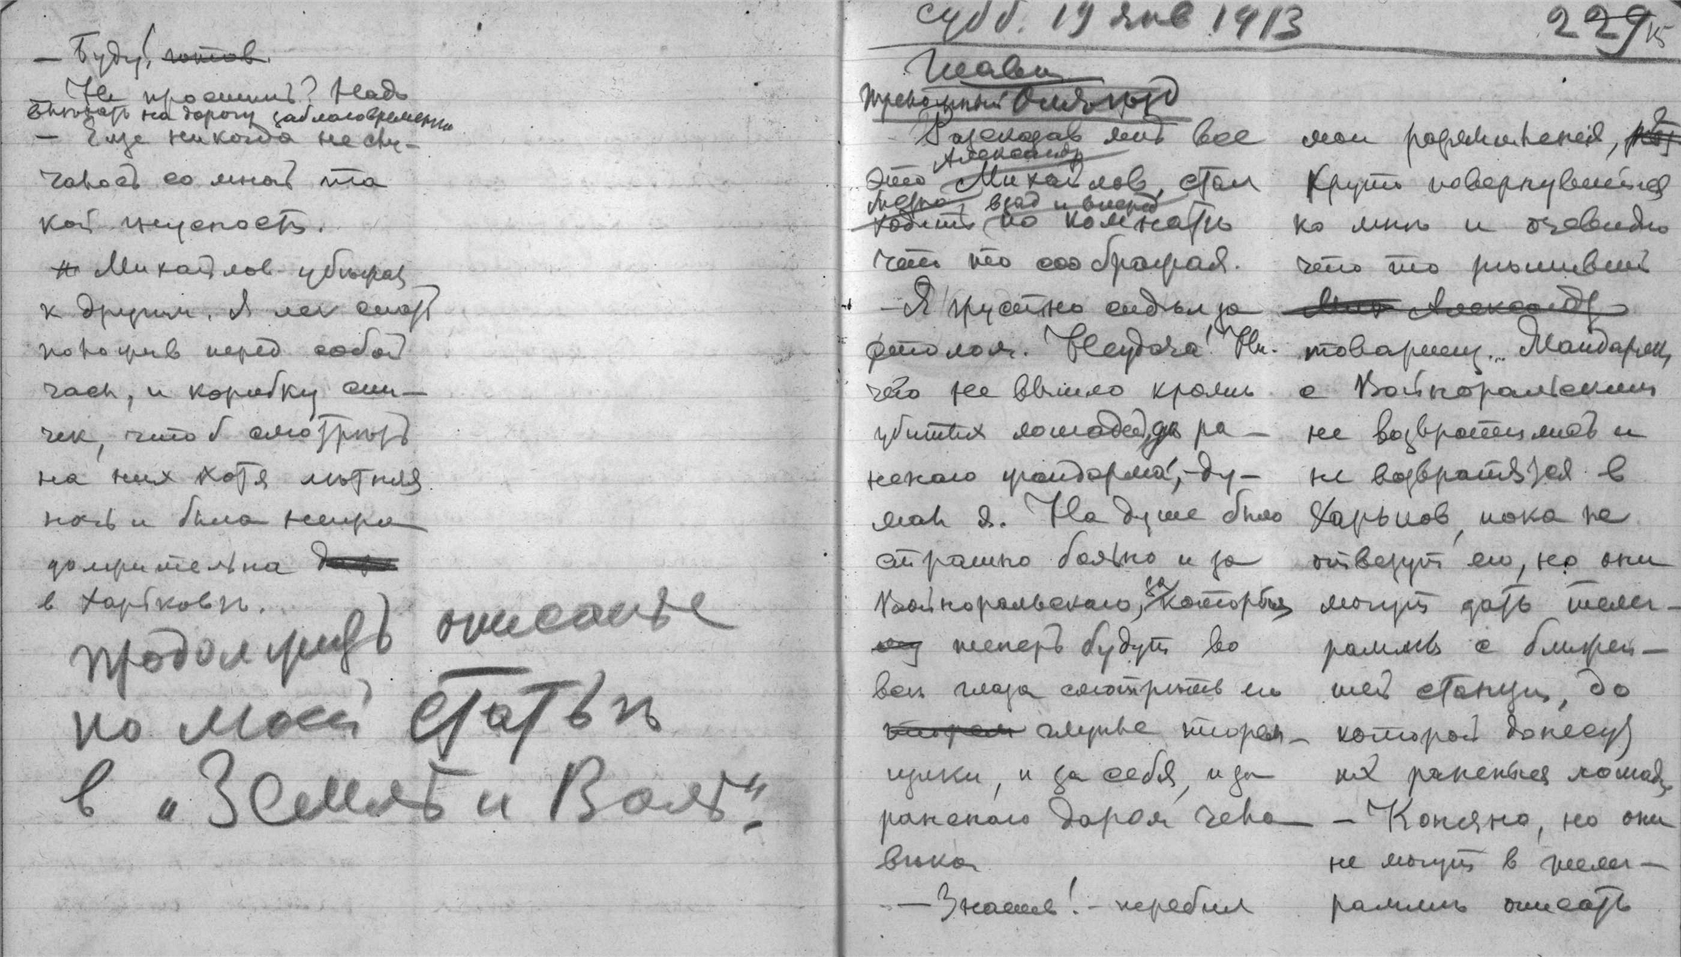 — Буду! готов.
Не проспишь? Надо
выехать на дорогу заблаговременно
— Еще никогда не слу-
чалось со мной та
кой глупости.
Михайлов убежал
к другим. Я лег спать
положив перед собой
часы, и коробку спи-
чек, чтоб смотреть
на них хотя летняя
ночь и была непро
должительна
в Харькове.
продолжить описанье
по моей статье
в „Земле и Воле“.
субб. 19 янв 1913
229
Глава
Тревожный отъезд
Разсказав мне все
Александр
это Михайлов, стал
взад и вперед
ходить по комнате
что то соображая.
— Я грустно сидел за
столом. Неудача! Ни-
что не вышло кроме
убитых лошадей, да ра-
неного жандарма, — ду-
мал я. На душе было
страшно больно и за
Войноральскаго, за которым
теперь будут во
все глаза смотреть его
глупые тюрем-
щики, и за себя, и за
раненого даром чело-
века
— Знаешь! — перебил
мои размышления,
круто повернувшись
ко мне и очевидно
что то решивший
Александр
товарищ... Жандармы
с Войноральским
не возвратились и
не возвратятся в
Харьков, пока не
отвезут его, но они
могут дать телег-
раммы с ближай-
шей станции, до
которой донесут
их раненыя лошади
— Конечно, но они
не могут в телег-
рамме описать